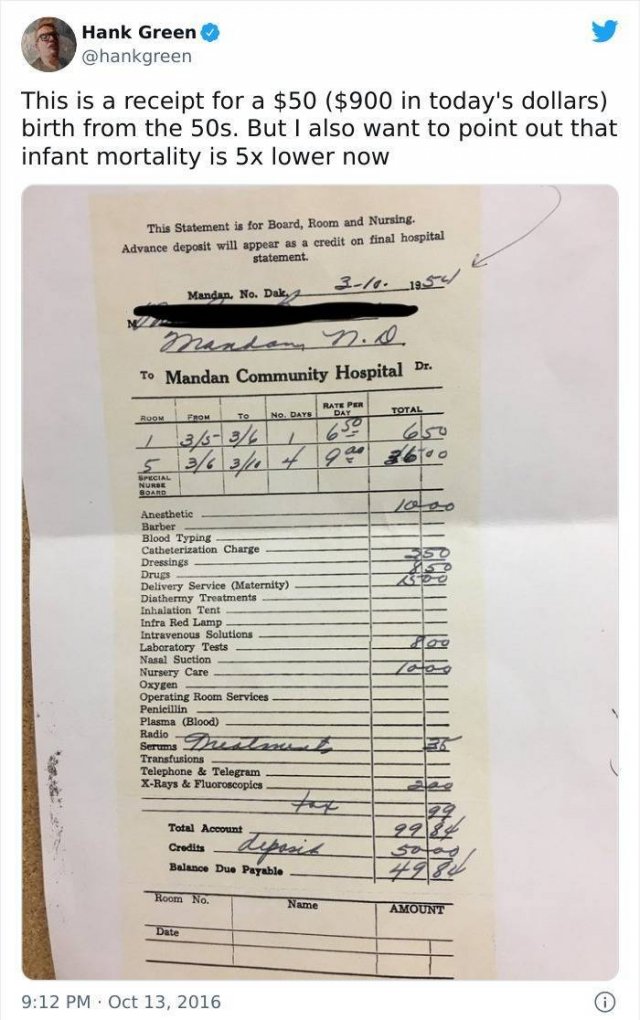 Hank Green
@hankgreen
This is a receipt for a $50 ($900 in today's dollars)
birth from the 50s. But I also want to point out that
infant mortality is 5x lower now
This Statement is for Board, Room and Nursing.
Advance deposit will appear as a credit on final hospital
statement.
Mandan, No. Dak., 3-10- 1954
M
Mandan, N.D.
To Mandan Community Hospital Dr.
ROOM FROM TO NO. DAYS RATE PER DAY TOTAL
1 3/5- 3/6 1 6 50 6 50
5 3/6 3/10 4 9 00 36 00
SPECIAL
NURSE
BOARD
Anesthetic 10 00
Barber
Blood Typing
Catheterization Charge
Dressings 2 50
Drugs 8 50
Delivery Service (Maternity) 15 00
Diathermy Treatments
Inhalation Tent
Infra Red Lamp
Intravenous Solutions
Laboratory Tests 8 00
Nasal Suction
Nursery Care 10 00
Oxygen
Operating Room Services
Penicillin
Plasma (Blood)
Radio
Serums Treatments 35
Transfusions
Telephone & Telegram
X-Rays & Fluoroscopics 2 00
tax 99
Total Account 99 84
Credits deposit 50 00
Balance Due Payable 49 84
Room No. Name AMOUNT
Date
9:12 PM · Oct 13, 2016